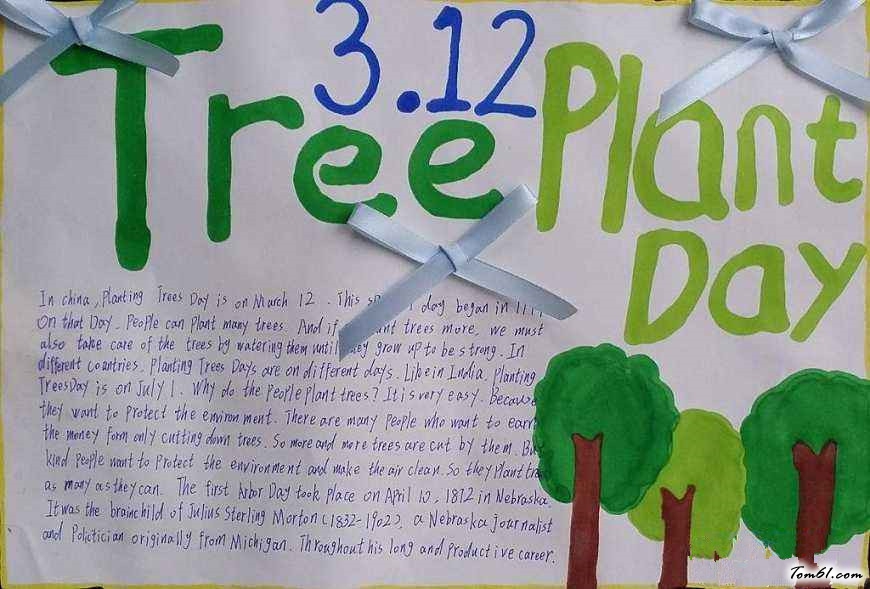 3.12
Tree Plant
Day
In china, Planting Trees Day is on March 12. This day began in
On that Day. People can Plant many trees. And if trees more, we must
also take care of the trees by watering them until grow up to be strong. In
different countries. Planting Trees Days are on different days. Like in India. Planting
Trees Day is on July 1. Why do the People Plant trees? It is very easy. Because
they want to Protect the environment. There are many People who want to earn
the money form only cutting down trees. So more and more trees are cut by them. But
kind People want to Protect the environment and make the air clean. So they Plant
as many as they can. The first Arbor Day took Place on April 10. 1872 in Nebraska.
It was the brainchild of Julius Sterling Morton (1832-1902). a Nebraska journalist
and Politician originally from Michigan. Throughout his long and productive career.
Tom61.com